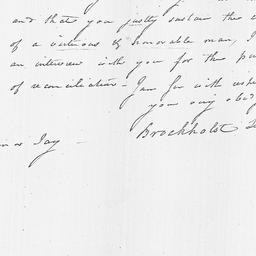 and that you justly sustain the
of a virtuous & honorable man, I
an interview with you for the pu
of reconciliation – I am Sir with resp
your very obed
Brockholst L
nor Jay –